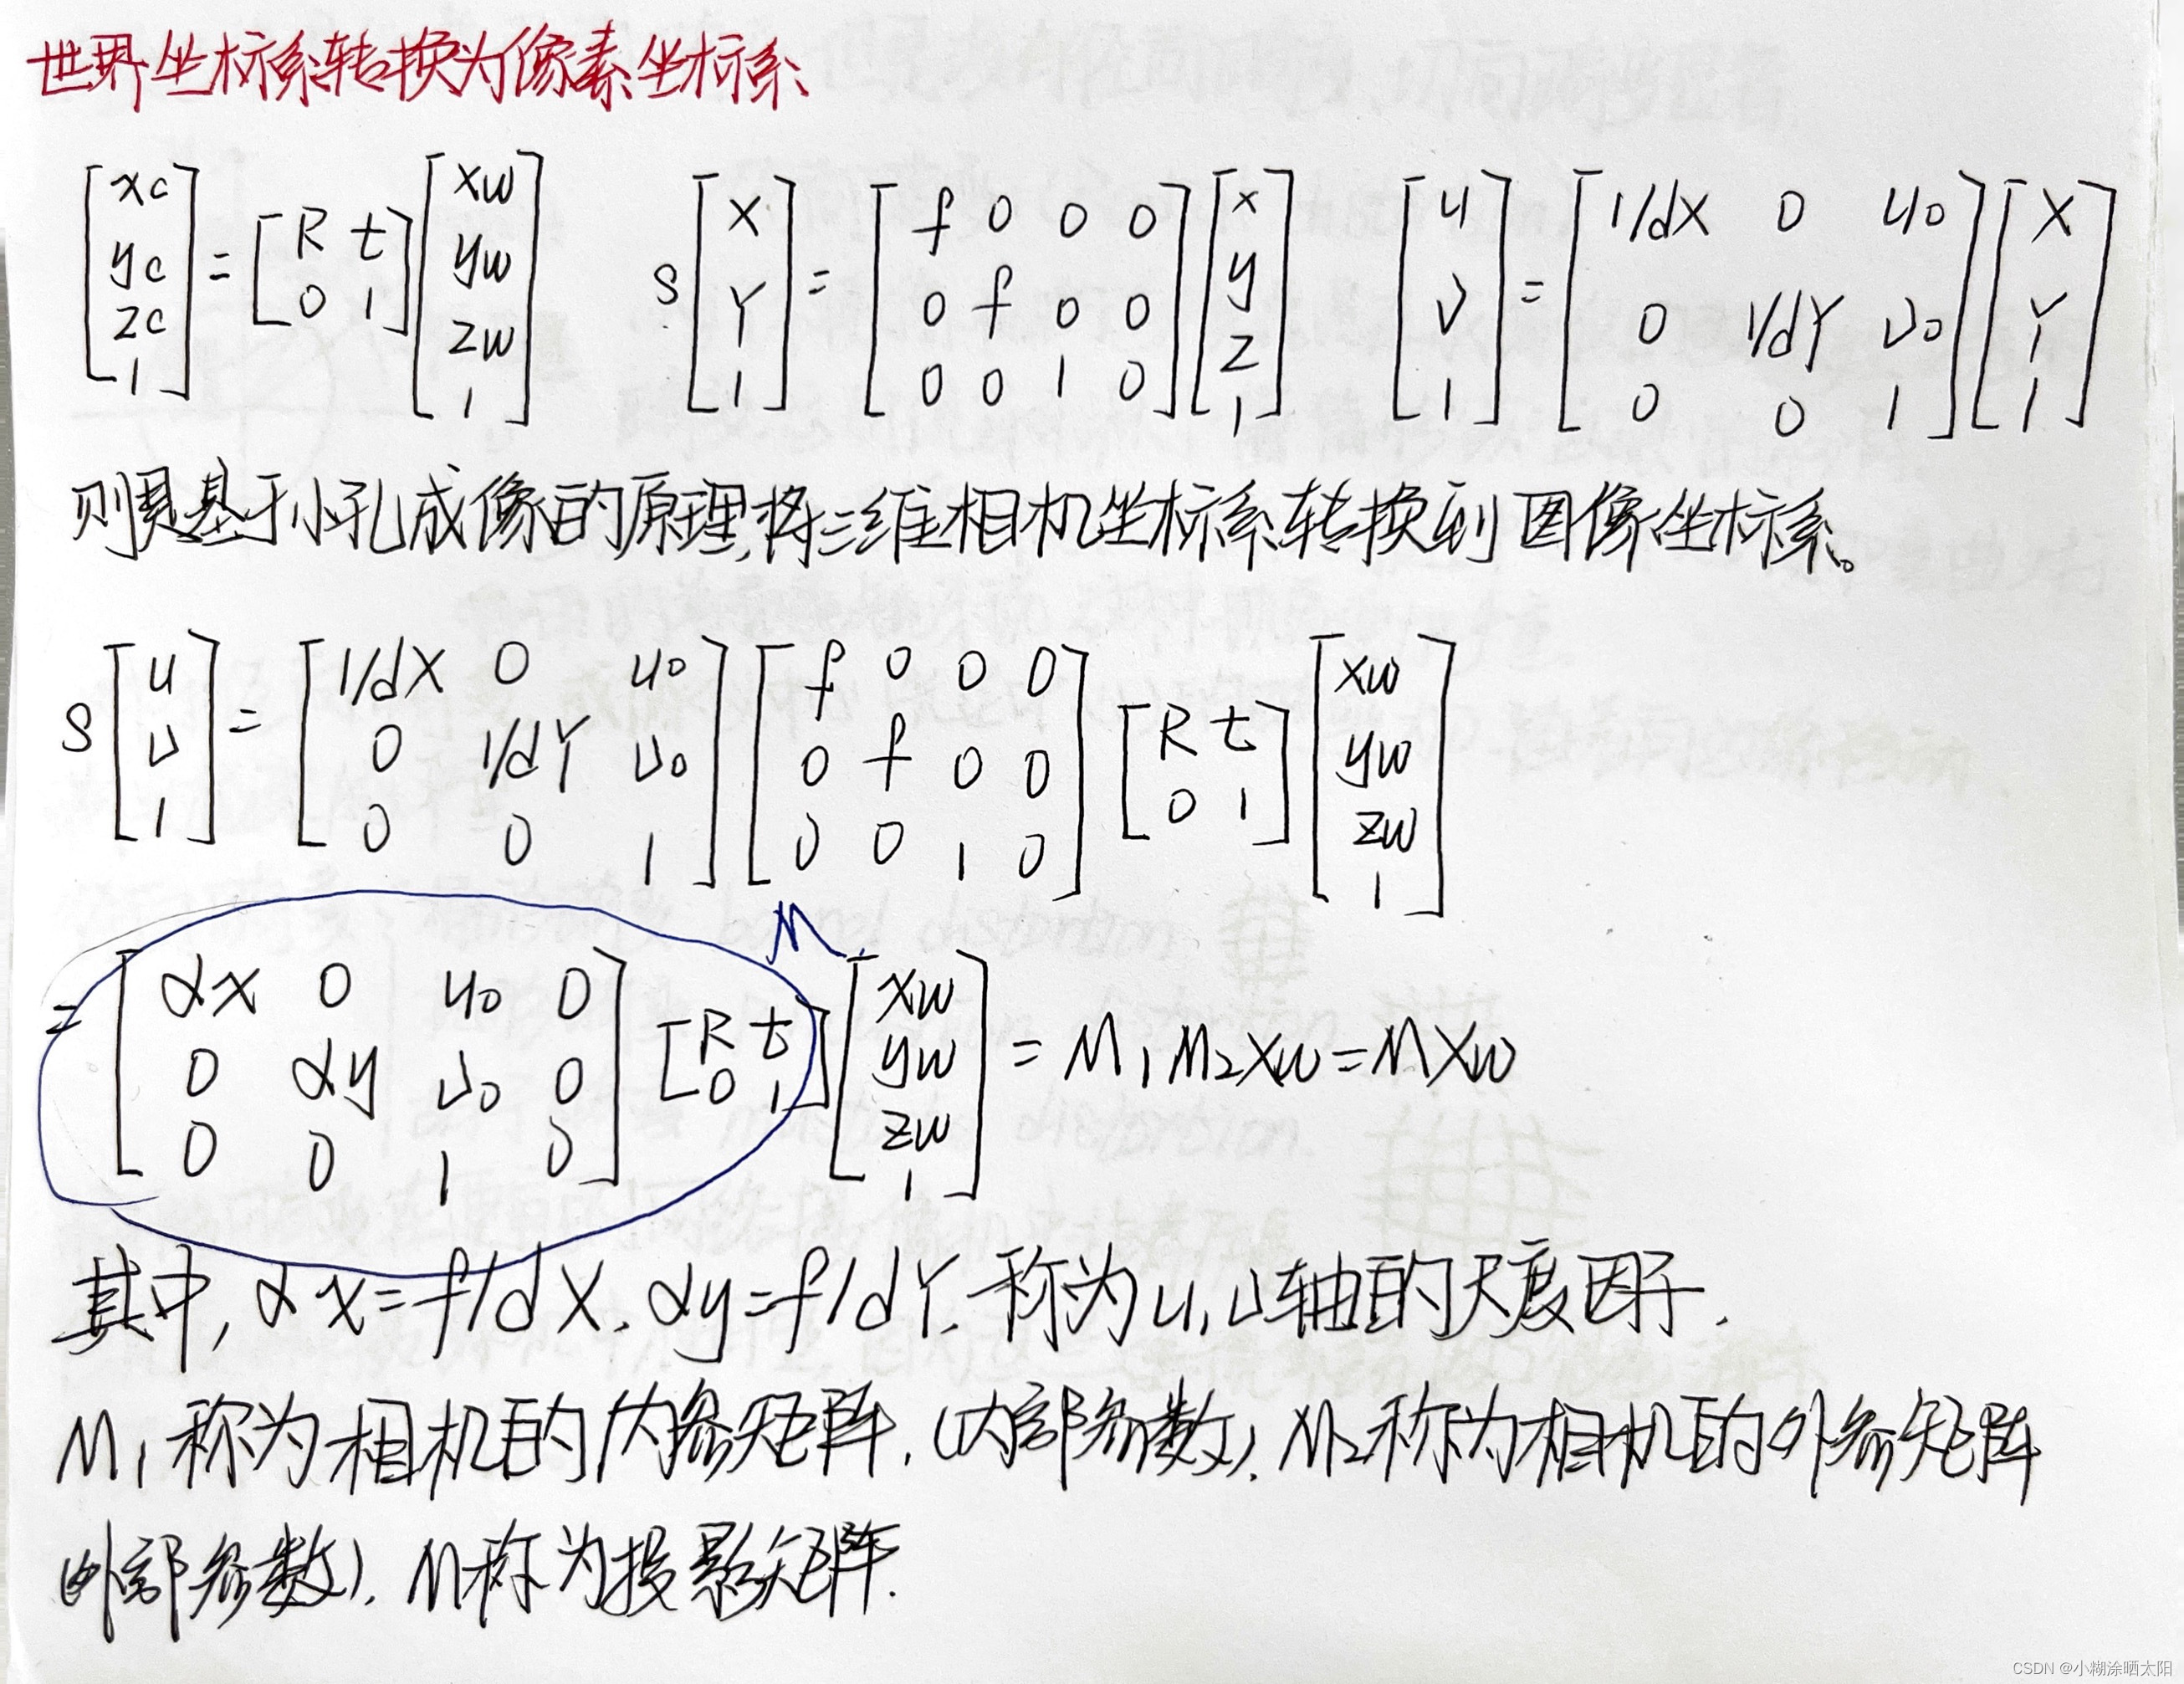 世界坐标系转换为像素坐标系
[xc yc zc 1] = [R t 0 1] [xw yw zw 1]  s[X Y 1] = [f 0 0 0 0 f 0 0 0 0 1 0] [x y z 1]  [u v 1] = [1/dX 0 u0 0 1/dY v0 0 0 1] [X Y 1]
则是基于小孔成像的原理,将三维相机坐标系转换到图像坐标系。
s[u v 1] = [1/dX 0 u0 0 1/dY v0 0 0 1] [f 0 0 0 0 f 0 0 0 0 1 0] [R t 0 1] [xw yw zw 1]
M
= [αx 0 u0 0 0 αy v0 0 0 0 1 0] [R t 0 1] [xw yw zw 1] = M1M2Xw = MXw
其中, αx=f/dX, αy=f/dY, 称为u,v轴的尺度因子.
M1称为相机的内参矩阵.(内部参数), M2称为相机的外参矩阵
(外部参数), M称为投影矩阵.
CSDN @小糊涂晒太阳